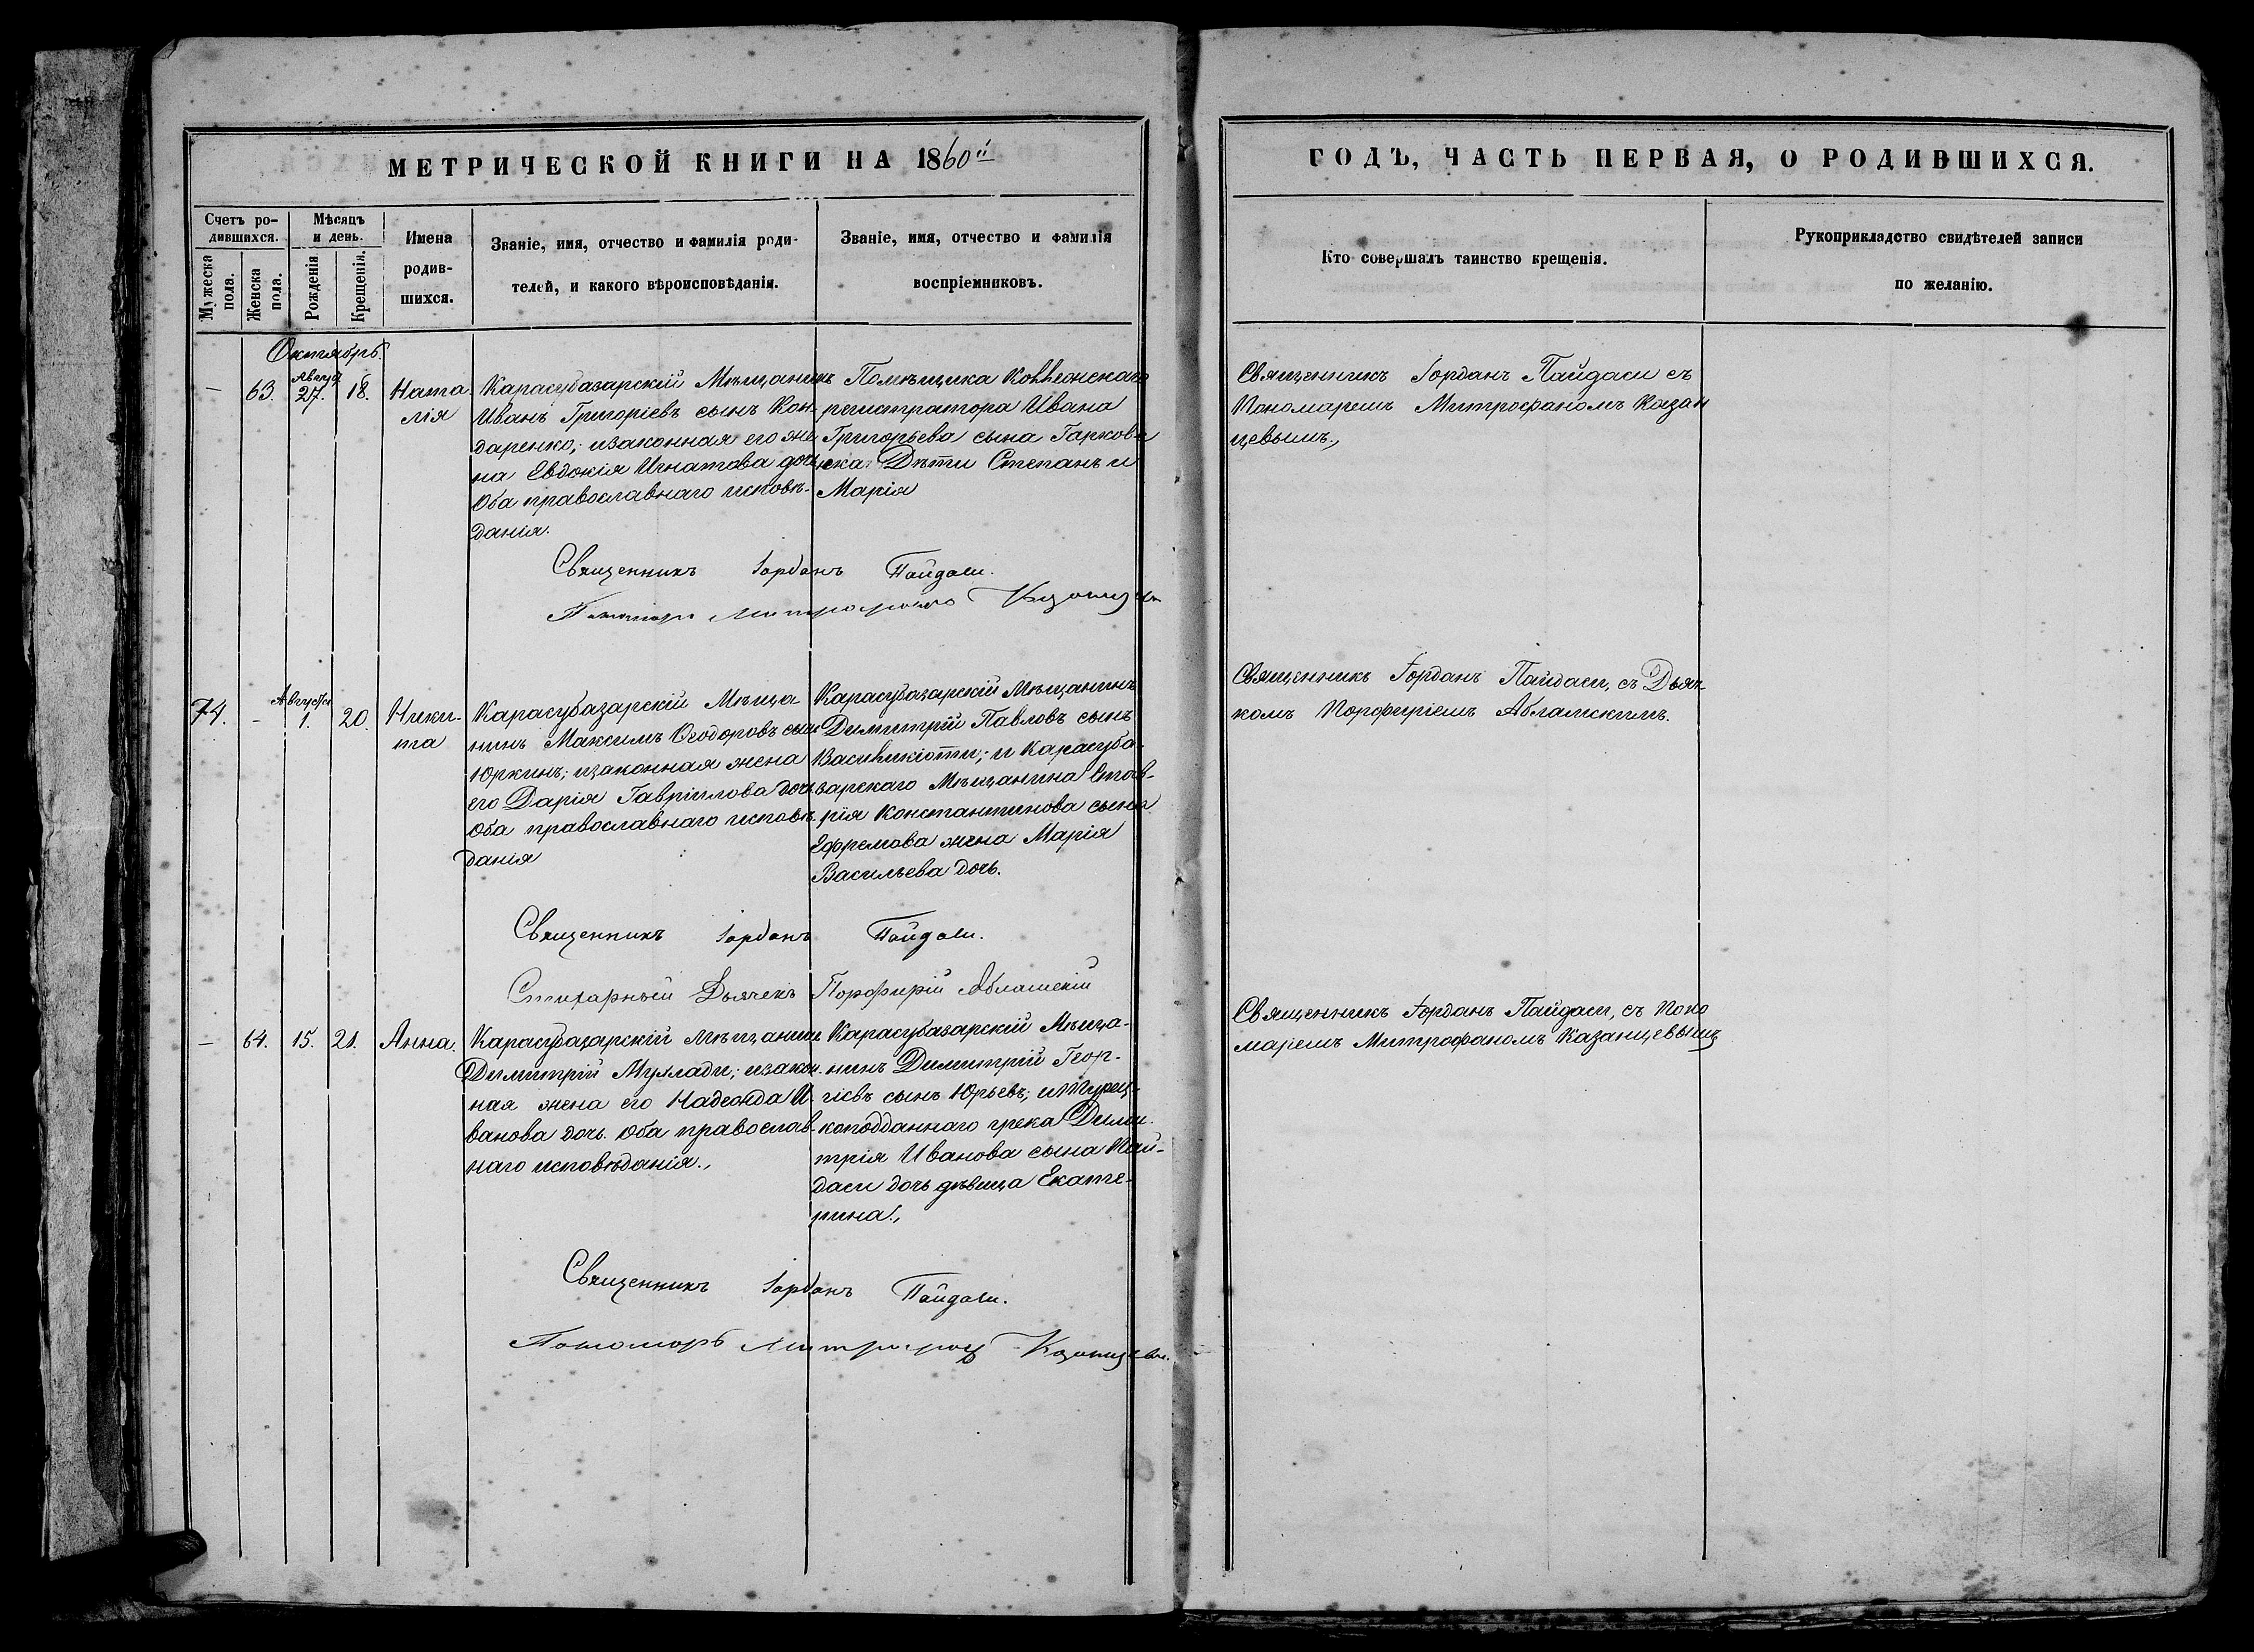 МЕТРИЧЕСКОЙ КНИГИ НА 1860й
ГОДЪ, ЧАСТЬ ПЕРВАЯ, О РОДИВШИХСЯ.
Счетъ ро-
дившихся.
Мѣсяцъ
и день.
Мужеска пола.
Женска пола.
Рожденія
Крещенія.
Имена
родив-
шихся.
Званіе, имя, отчество и фамилія роди-
телей, и какого вѣроисповѣданія.
Званіе, имя, отчество и фамилія
воспріемниковъ.
Кто совершалъ таинство крещенія.
Рукоприкладство свидѣтелей записи
по желанію.
Октябрь.
— 63. Август 27. 18.
Ната
лія
Карасубазарскій Мѣщанинъ
Иванъ Григоріевъ сынъ Кон-
даренко; изаконная его же
на Евдокія Игнатова дочь
Оба православнаго исповѣ-
данія.
Помѣщика
регистратора Ивана
Григорьева сына
Дѣти Степанъ и
Марія
Священникъ Іорданъ Пайдаси съ
Пономаремъ Митрофаномъ Казан
цевымъ.,
Священникъ Іорданъ Пайдаси.
Пономарь Митрофанъ Казанцев
74. - Августа 1. 20.
Ники-
та
Карасубазарскій Мѣща-
нинъ Максимъ Ѳеодоровъ сынъ
Юркинъ; изаконная жена
его Дарія Гавріилова дочь
Оба православнаго исповѣ-
данія
Карасубазарскій Мѣщанинъ
Димитрій Павловъ сынъ
и Карасуба-
зарскаго Мѣщанина Став-
рія Константинова сына
Ефремова жена Марія
Васильева дочь.
Священникъ Іорданъ Пайдаси, съ Дьяч-
комъ Порфиріемъ Аблашскимъ.
Священникъ Іорданъ Пайдаси.
Стихарный Дьячекъ Порфирій Аблашскій
— 64. 15. 21.
Анна.
Карасубазарскій Мѣщанин
Димитрій Мухлади; изакон-
ная жена его Надежда И-
ванова дочь. Оба православ-
наго исповѣданія.,
Карасубазарскій Мѣща-
нинъ Димитрій Геор-
гіевъ сынъ Юрьевъ; и Турец-
коподданнаго грека Дими-
трія Иванова сына Пай-
даси дочь дѣвица Екате-
рина.,
Священникъ Іорданъ Пайдаси, съ Поно
маремъ Митрофаномъ Казанцевымъ
Священникъ Іорданъ Пайдаси.
Пономарь Митрофанъ Казанцевъ.